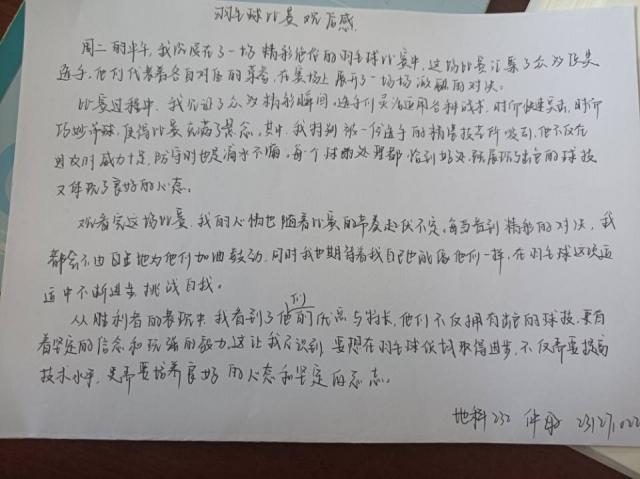 羽毛球比赛观后感
周二的下午,我沉浸在了一场精彩绝伦的羽毛球比赛中,这场比赛汇集了众多优秀
选手,他们代表着各自对伍的荣誉,在赛场上展开了一场场激烈的对决。
比赛过程中,我见证了众多精彩瞬间,选手们灵活运用各种战术,时而快速突击,时而
巧妙吊球,使得比赛充满了悬念。其中,我特别被一位选手的精湛技艺所吸引,他不仅在
进攻时威力十足,防守时也是滴水不漏,每个球的处理都恰到好处,既展现了出色的球技
又体现了良好的心态。
观看完这场比赛,我的心情也随着比赛的节奏起伏不定,每当看到精彩的对决,我
都会不由自主地为他们加油鼓劲,同时我也期待着我自己也能像他们一样,在羽毛球这项运
动中不断进步,挑战自我。
从胜利者的表现中,我看到了他们的优点与特长,他们不仅拥有出色的球技,更有
着坚定的信念和顽强的毅力,这让我认识到,要想在羽毛球领域取得进步,不仅需要提高
技术水平,更需要培养良好的心态和坚定的意志。
地科232 231271022